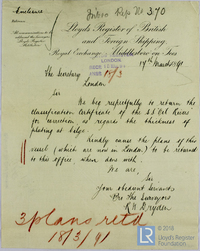 Enclosure
Lloyd's Register of British
and Foreign Shipping.
Royal Exchange, Middlesbro on Tees
17th March 1891
The Secretary 18/3
London
Sir
We beg respectfully to return the
classification Certificates of the SS Del Norte
for correction as regards the thickness of
plating at bilge.
Kindly cause the plans of this
vessel (which are now in London) to be returned
to this office when done with.
We are,
Sir
Your obedient Servants
Pro The Surveyors
3 plans retd
18/3/91
© 2018
Lloyd's
Register
Foundation